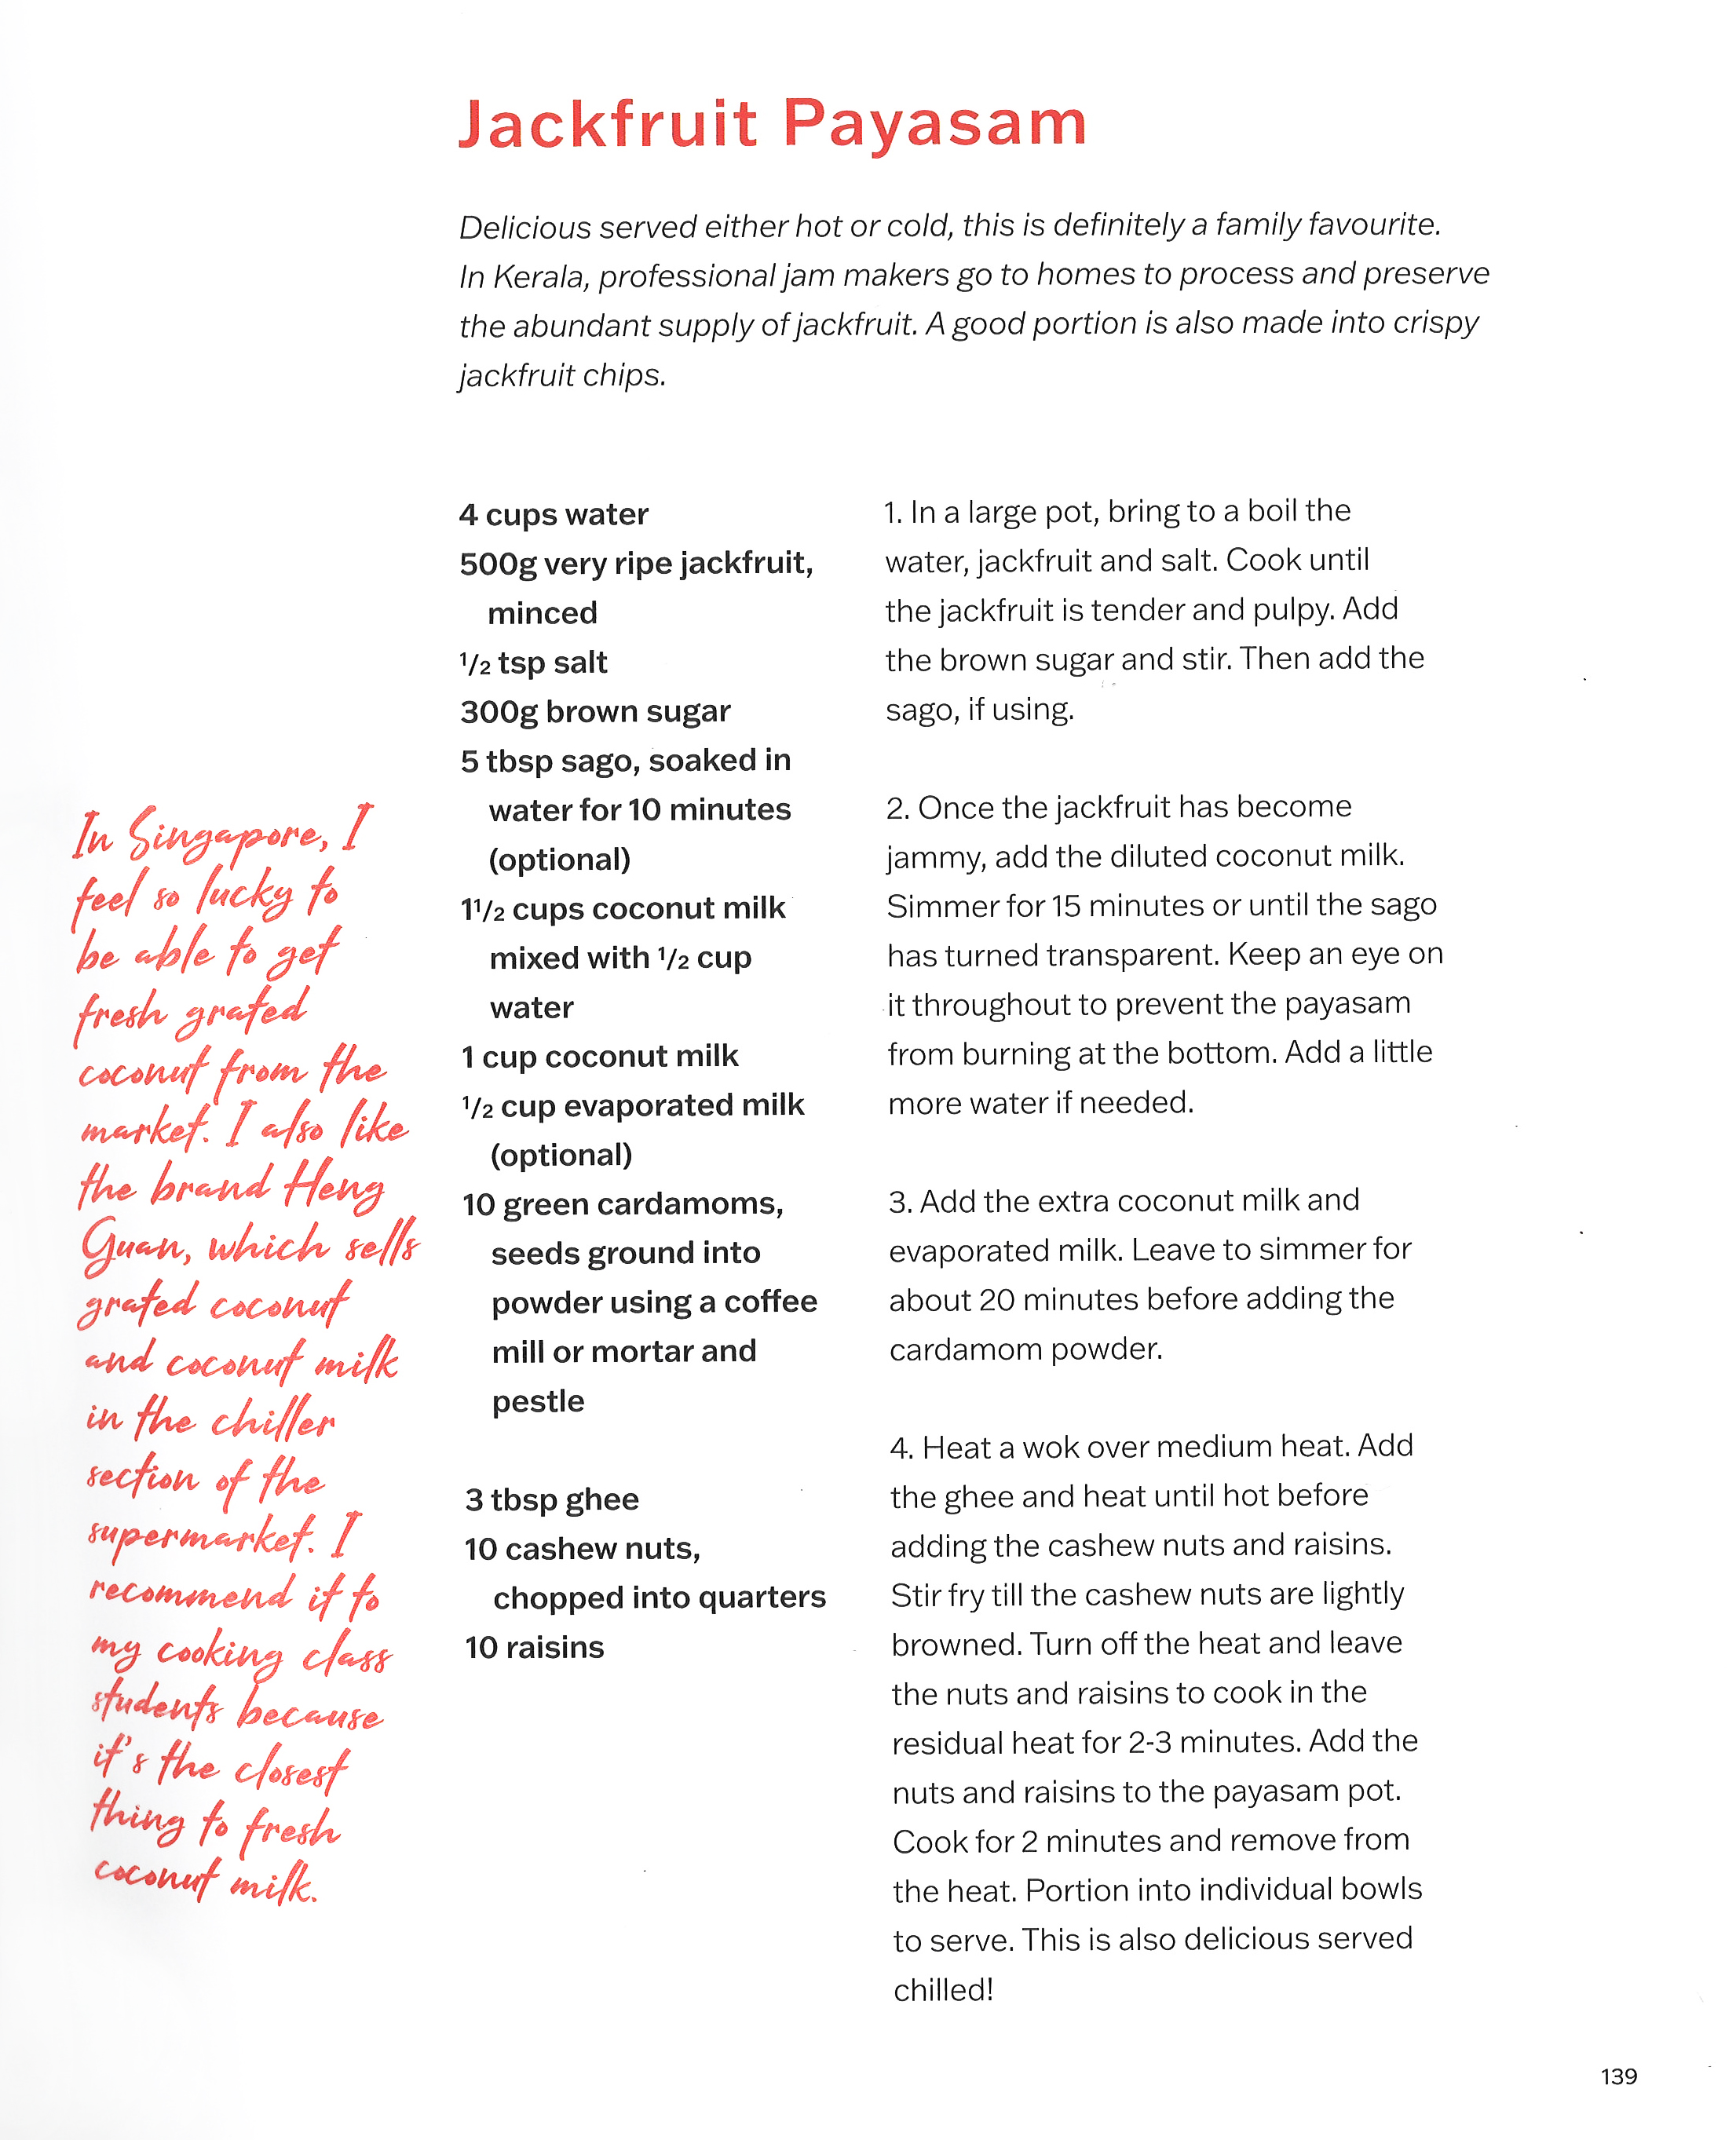 Jackfruit Payasam
Delicious served either hot or cold, this is definitely a family favourite.
In Kerala, professional jam makers go to homes to process and preserve
the abundant supply of jackfruit. A good portion is also made into crispy
jackfruit chips.
In Singapore, I
feel so lucky to
be able to get
fresh grated
coconut from the
market. I also like
the brand Heng
Guan, which sells
grated coconut
and coconut milk
in the chiller
section of the
supermarket. I
recommend it to
my cooking class
students because
it's the closest
thing to fresh
coconut milk.
4 cups water
500g very ripe jackfruit,
minced
1/2 tsp salt
300g brown sugar
5 tbsp sago, soaked in
water for 10 minutes
(optional)
11/2 cups coconut milk
mixed with 1/2 cup
water
1 cup coconut milk
1/2 cup evaporated milk
(optional)
10 green cardamoms,
seeds ground into
powder using a coffee
mill or mortar and
pestle
3 tbsp ghee
10 cashew nuts,
chopped into quarters
10 raisins
1. In a large pot, bring to a boil the
water, jackfruit and salt. Cook until
the jackfruit is tender and pulpy. Add
the brown sugar and stir. Then add the
sago, if using.
2. Once the jackfruit has become
jammy, add the diluted coconut milk.
Simmer for 15 minutes or until the sago
has turned transparent. Keep an eye on
it throughout to prevent the payasam
from burning at the bottom. Add a little
more water if needed.
3. Add the extra coconut milk and
evaporated milk. Leave to simmer for
about 20 minutes before adding the
cardamom powder.
4. Heat a wok over medium heat. Add
the ghee and heat until hot before
adding the cashew nuts and raisins.
Stir fry till the cashew nuts are lightly
browned. Turn off the heat and leave
the nuts and raisins to cook in the
residual heat for 2-3 minutes. Add the
nuts and raisins to the payasam pot.
Cook for 2 minutes and remove from
the heat. Portion into individual bowls
to serve. This is also delicious served
chilled!
139